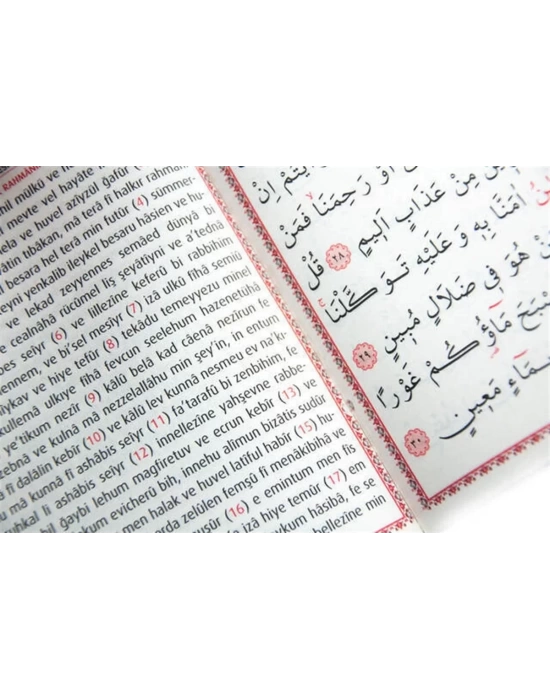 RAHMANI
mülkü ve
meyte vel hayâte
ve huvel azîyzül gafûr
tıbâkan, mâ terâ fî halkır rahmani
besara hel terâ min futûr (4) sümmer-
yenkalib ileykel besaru hâsien ve hu-
ve lekad zeyyennes semâed dünyâ bi
cealnâhâ rücûmel liş şeyâtıyni ve a'tednâ
seıyr (6) ve lillezîne keferû bi rabbihim
ve bi'sel mesıyr (7) izâ ulkû fîhâ semiû
ve hiye tefûr (8) tekâdu temeyyezu minel
kullemâ ulkıye fîhâ fevcun seelehum hazenetühâ
e'tikum nezîr (9) kâlû belâ kad câenâ nezîrun fe
ve kulnâ mâ nezzelallâhu min şey'in, in entum
fî dalâlin kebîr (10) ve kâlû lev kunnâ nesmeu ev na'kı-
mâ kunnâ fî ashâbis seıyr (11) fa'tarafû bi zenbihim, fe
fî ashâbis seıyr (12) innellezîne yahşevne rabbe-
bil ğaybi lehum mağfiretuv ve ecrun kebîr (13) ve
evicherû bih, innehu alîmun bizâtis sudûr
men halak ve huvel latîful habîr (15) hu-
zelûlen femşû fî menâkibihâ ve
(16) e emintum men fis
izâ hiye temûr (17) em
hâsıbâ, fe se
bellezîne min
اَوْ رَحِمَنَاۙ فَمَنْ
مِنْ عَذَابٍ اَلٖيمٍ ٢٨ قُلْ
اٰمَنَّا بِهٖ وَعَلَيْهِ تَوَكَّلْنَاۚ
هُوَ فٖي ضَلَالٍ مُبٖينٍ ٢٩
مَٓاؤُ۬كُمْ غَوْرًا
مَعٖينٍ ٣٠